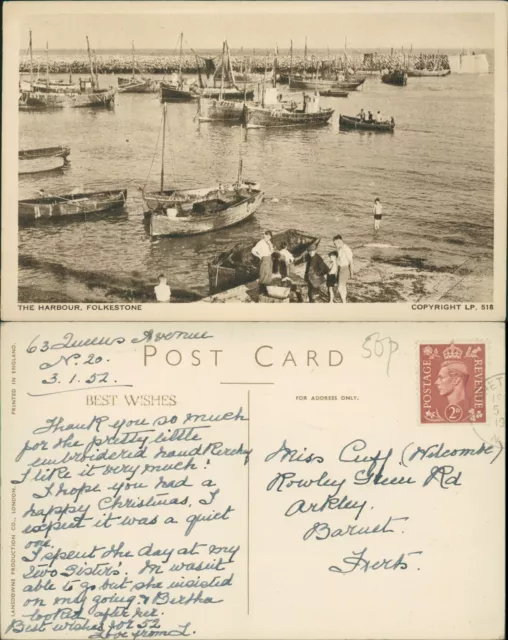 THE HARBOUR, FOLKESTONE
COPYRIGHT LP. 518
63 Queens Avenue
N. 20.
3.1.52.
POST CARD
50p
BEST WISHES
FOR ADDRESS ONLY.
PRINTED IN ENGLAND.
LANSDOWNE PRODUCTION CO., LONDON.
POSTAGE
REVENUE
2D
Thank you so much
for the pretty little
embroidered handkerchy
I like it very much!
I hope you had a
happy Christmas, I
expect it was a quiet
one.
I spent the day at my
Two Sisters'. M wasn't
able to go but she insisted
on my going & Bertha
looked after her.
Best wishes for 52
Love from L.
Miss Cuff (Welcombe)
Rowley Green Rd
Arkley.
Barnet.
Herts.